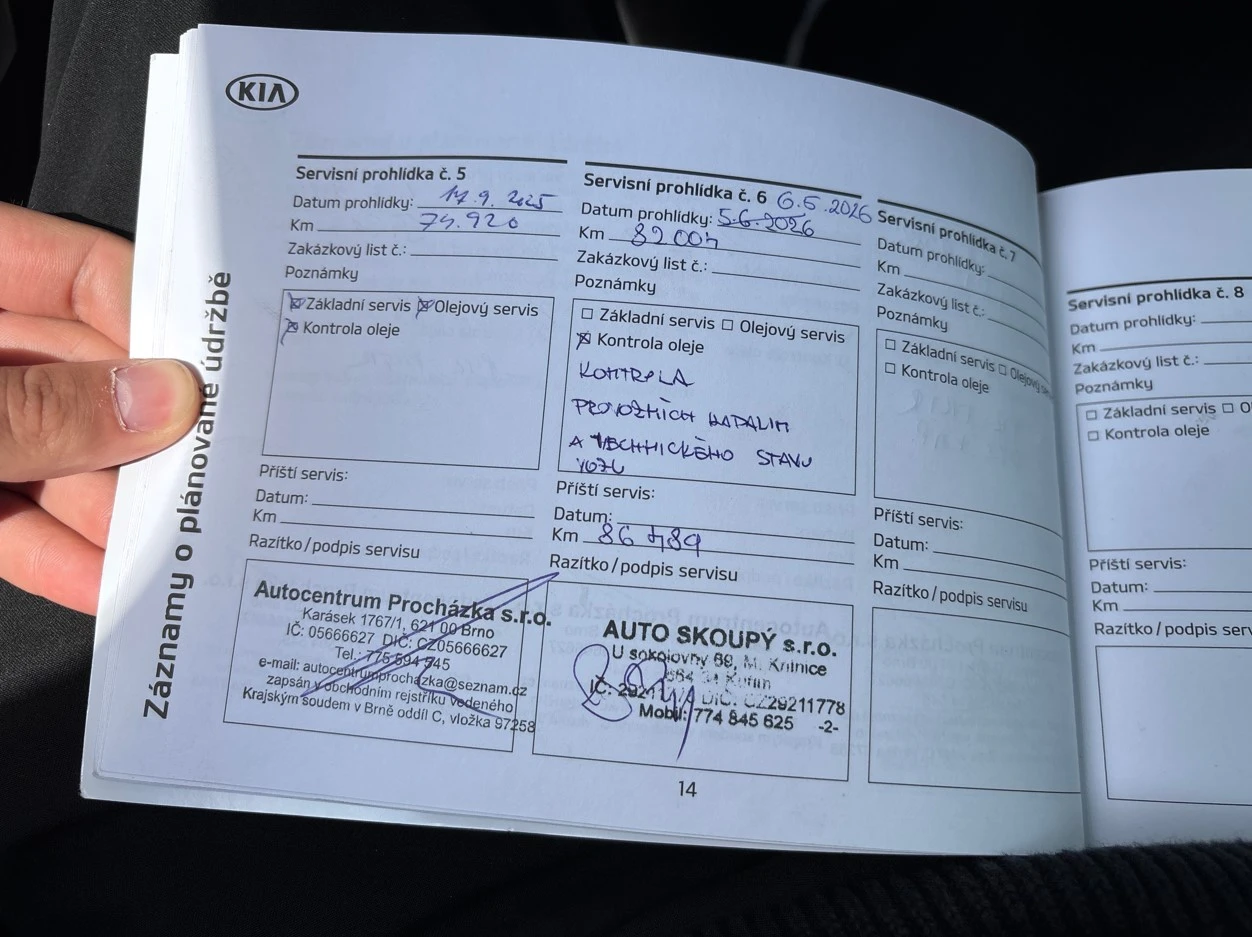 KIA
Záznamy o plánované údržbě
Servisní prohlídka č. 5
Datum prohlídky: 17.9. 2025
Km 74.920
Zakázkový list č.:
Poznámky
Základní servis Olejový servis
Kontrola oleje
Příští servis:
Datum:
Km
Razítko/podpis servisu
Autocentrum Procházka s.r.o.
Karásek 1767/1, 621 00 Brno
IČ: 05666627 DIČ: CZ05666627
Tel.: 775 594 545
e-mail: autocentrumprochazka@seznam.cz
zapsán v obchodním rejstříku vedeného
Krajským soudem v Brně oddíl C, vložka 97258
Servisní prohlídka č. 6 6.5.2026
Datum prohlídky: 5.6.2026
Km
Zakázkový list č.:
Poznámky
Základní servis Olejový servis
Kontrola oleje
KONTROLA
PROVOZNÍCH KAPALIN
A TECHNICKÉHO STAVU
VOZU
Příští servis:
Datum:
Km 86 489
Razítko/podpis servisu
AUTO SKOUPÝ s.r.o.
U sokolovny 69, M. Knínice
664 34 Kuřim
DIČ: CZ29211778
Mobil: 774 845 625 -2-
Servisní prohlídka č. 7
Datum prohlídky:
Km
Zakázkový list č.:
Poznámky
Základní servis
Kontrola oleje
Příští servis:
Datum:
Km
Razítko/podpis servisu
14
Servisní prohlídka č. 8
Datum prohlídky:
Km
Zakázkový list č.:
Poznámky
Základní servis O
Kontrola oleje
Příští servis:
Datum:
Km
Razítko/podpis serv